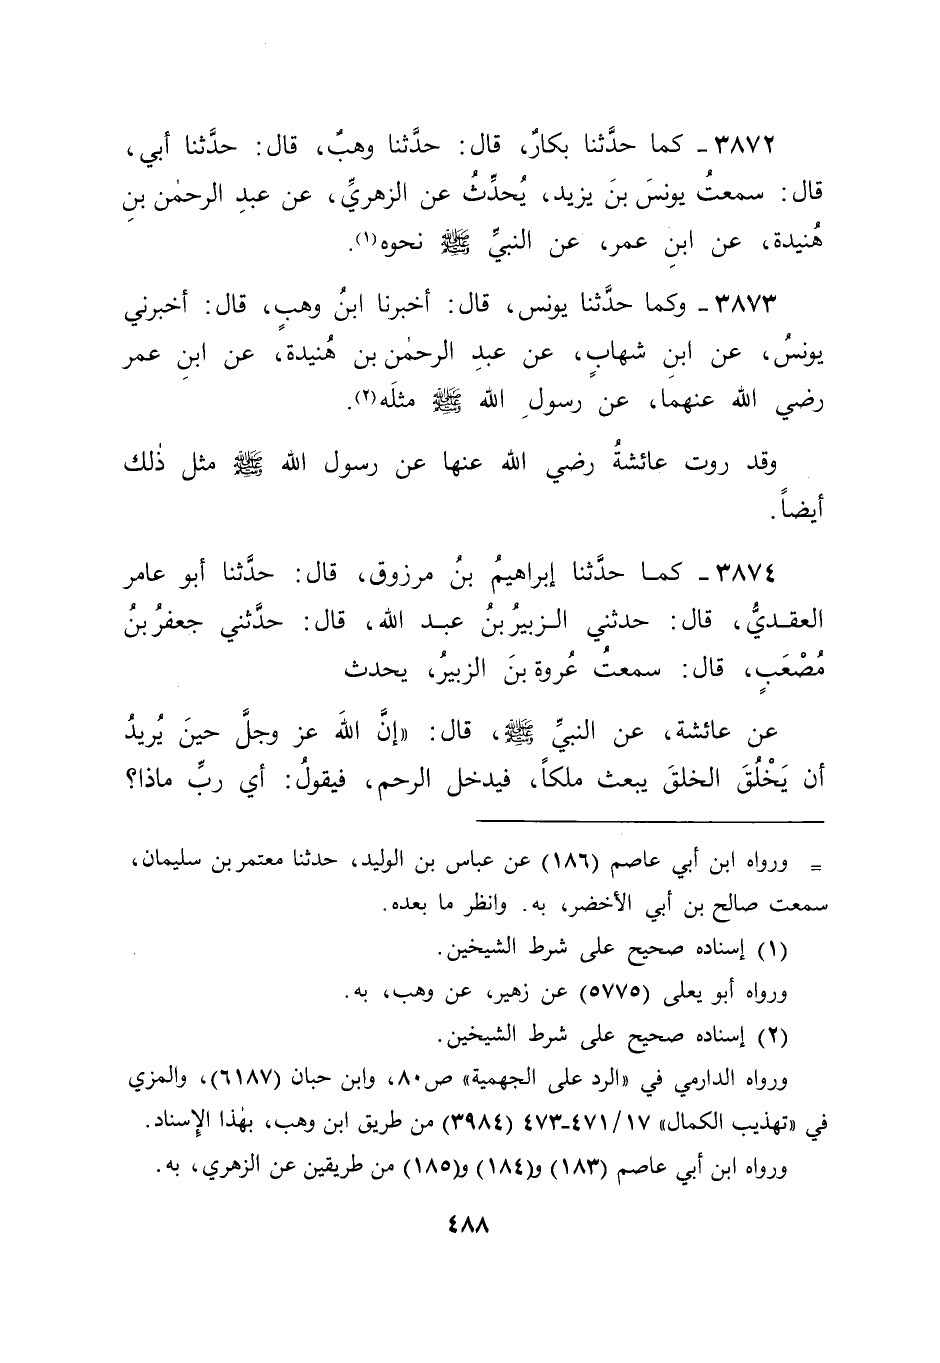 ٣٨٧٢ - كما حدَّثنا بكارٌ، قال: حدَّثنا وهبٌ، قال: حدَّثنا أبي،
قال: سمعتُ يونسَ بنَ يزيد، يُحدِّثُ عن الزهريِّ، عن عبدِ الرحمٰن بنِ
هُنيدة، عن ابنِ عمر، عن النبيِّ ﷺ نحوه(١).
٣٨٧٣ - وكما حدَّثنا يونس، قال: أخبرنا ابنُ وهبٍ، قال: أخبرني
يونسُ، عن ابنِ شهابٍ، عن عبدِ الرحمٰن بن هُنيدة، عن ابنِ عمر
رضي الله عنهما، عن رسولِ الله ﷺ مثلَه(٢).
وقد روت عائشةُ رضي الله عنها عن رسول الله ﷺ مثل ذٰلك
أيضاً.
٣٨٧٤ - كما حدَّثنا إبراهيمُ بنُ مرزوق، قال: حدَّثنا أبو عامر
العقديُّ، قال: حدثني الزبيرُ بنُ عبد الله، قال: حدَّثني جعفرُ بنُ
مُصْعَبٍ، قال: سمعتُ عُروة بنَ الزبيرُ، يحدث
عن عائشة، عن النبيِّ ﷺ، قال: «إنَّ اللهَ عز وجلَّ حينَ يُريدُ
أن يَخْلُقَ الخلقَ يبعث ملكاً، فيدخل الرحم، فيقولُ: أي ربِّ ماذا؟
= ورواه ابن أبي عاصم (١٨٦) عن عباس بن الوليد، حدثنا معتمر بن سليمان،
سمعت صالح بن أبي الأخضر، به. وانظر ما بعده.
(١) إسناده صحيح على شرط الشيخين.
ورواه أبو يعلى (٥٧٧٥) عن زهير، عن وهب، به.
(٢) إسناده صحيح على شرط الشيخين.
ورواه الدارمي في «الرد على الجهمية» ص٨٠، وابن حبان (٦١٨٧)، والمزي
في «تهذيب الكمال» ٤٧١/١٧-٤٧٣ (٣٩٨٤) من طريق ابن وهب، بهٰذا الإسناد.
ورواه ابن أبي عاصم (١٨٣) و(١٨٤) و(١٨٥) من طريقين عن الزهري، به.
٤٨٨